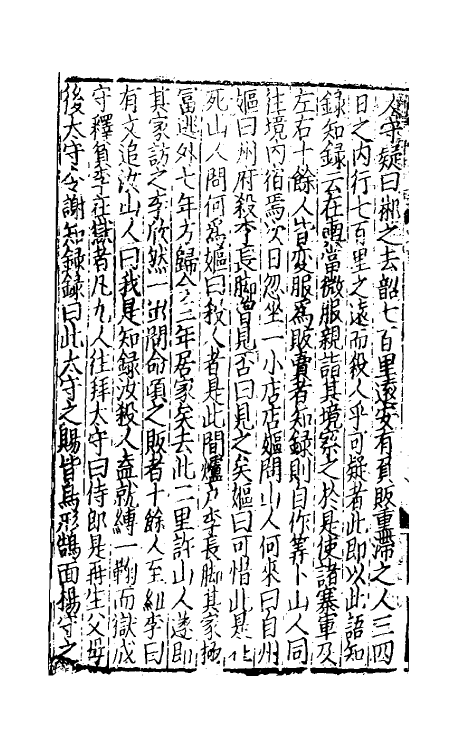 人守疑曰郴之去韶七百里遠安有負販重滯之人三四
日之内行七百里之遠而殺人乎可疑者此即以此語知
録知録云在興當微服親詣其境察之於是使諸寨軍及
左右十餘人皆変服爲販賣者知録則自作筭卜山人同
往境内宿焉次日忽坐一小店店嫗問山人何來曰自州
嫗曰州府殺李長脚曾見否曰見之矣嫗曰可惜此是
死山人問何爲嫗曰殺人者是此間爐戸李長脚其家極
富逃外七年方歸今三年居家矣去此二里許山人遂即
其家訪之李欣然一出問命頃之販者十餘人至紐李曰
有文追汝山人曰我是知録汝殺人盍就縛一鞫而獄成
守釋負李在獄者凡九人往拜太守曰侍郎是再生父母
後太守令謝知録録曰此太守之賜皆鳥形鵠面楊守之